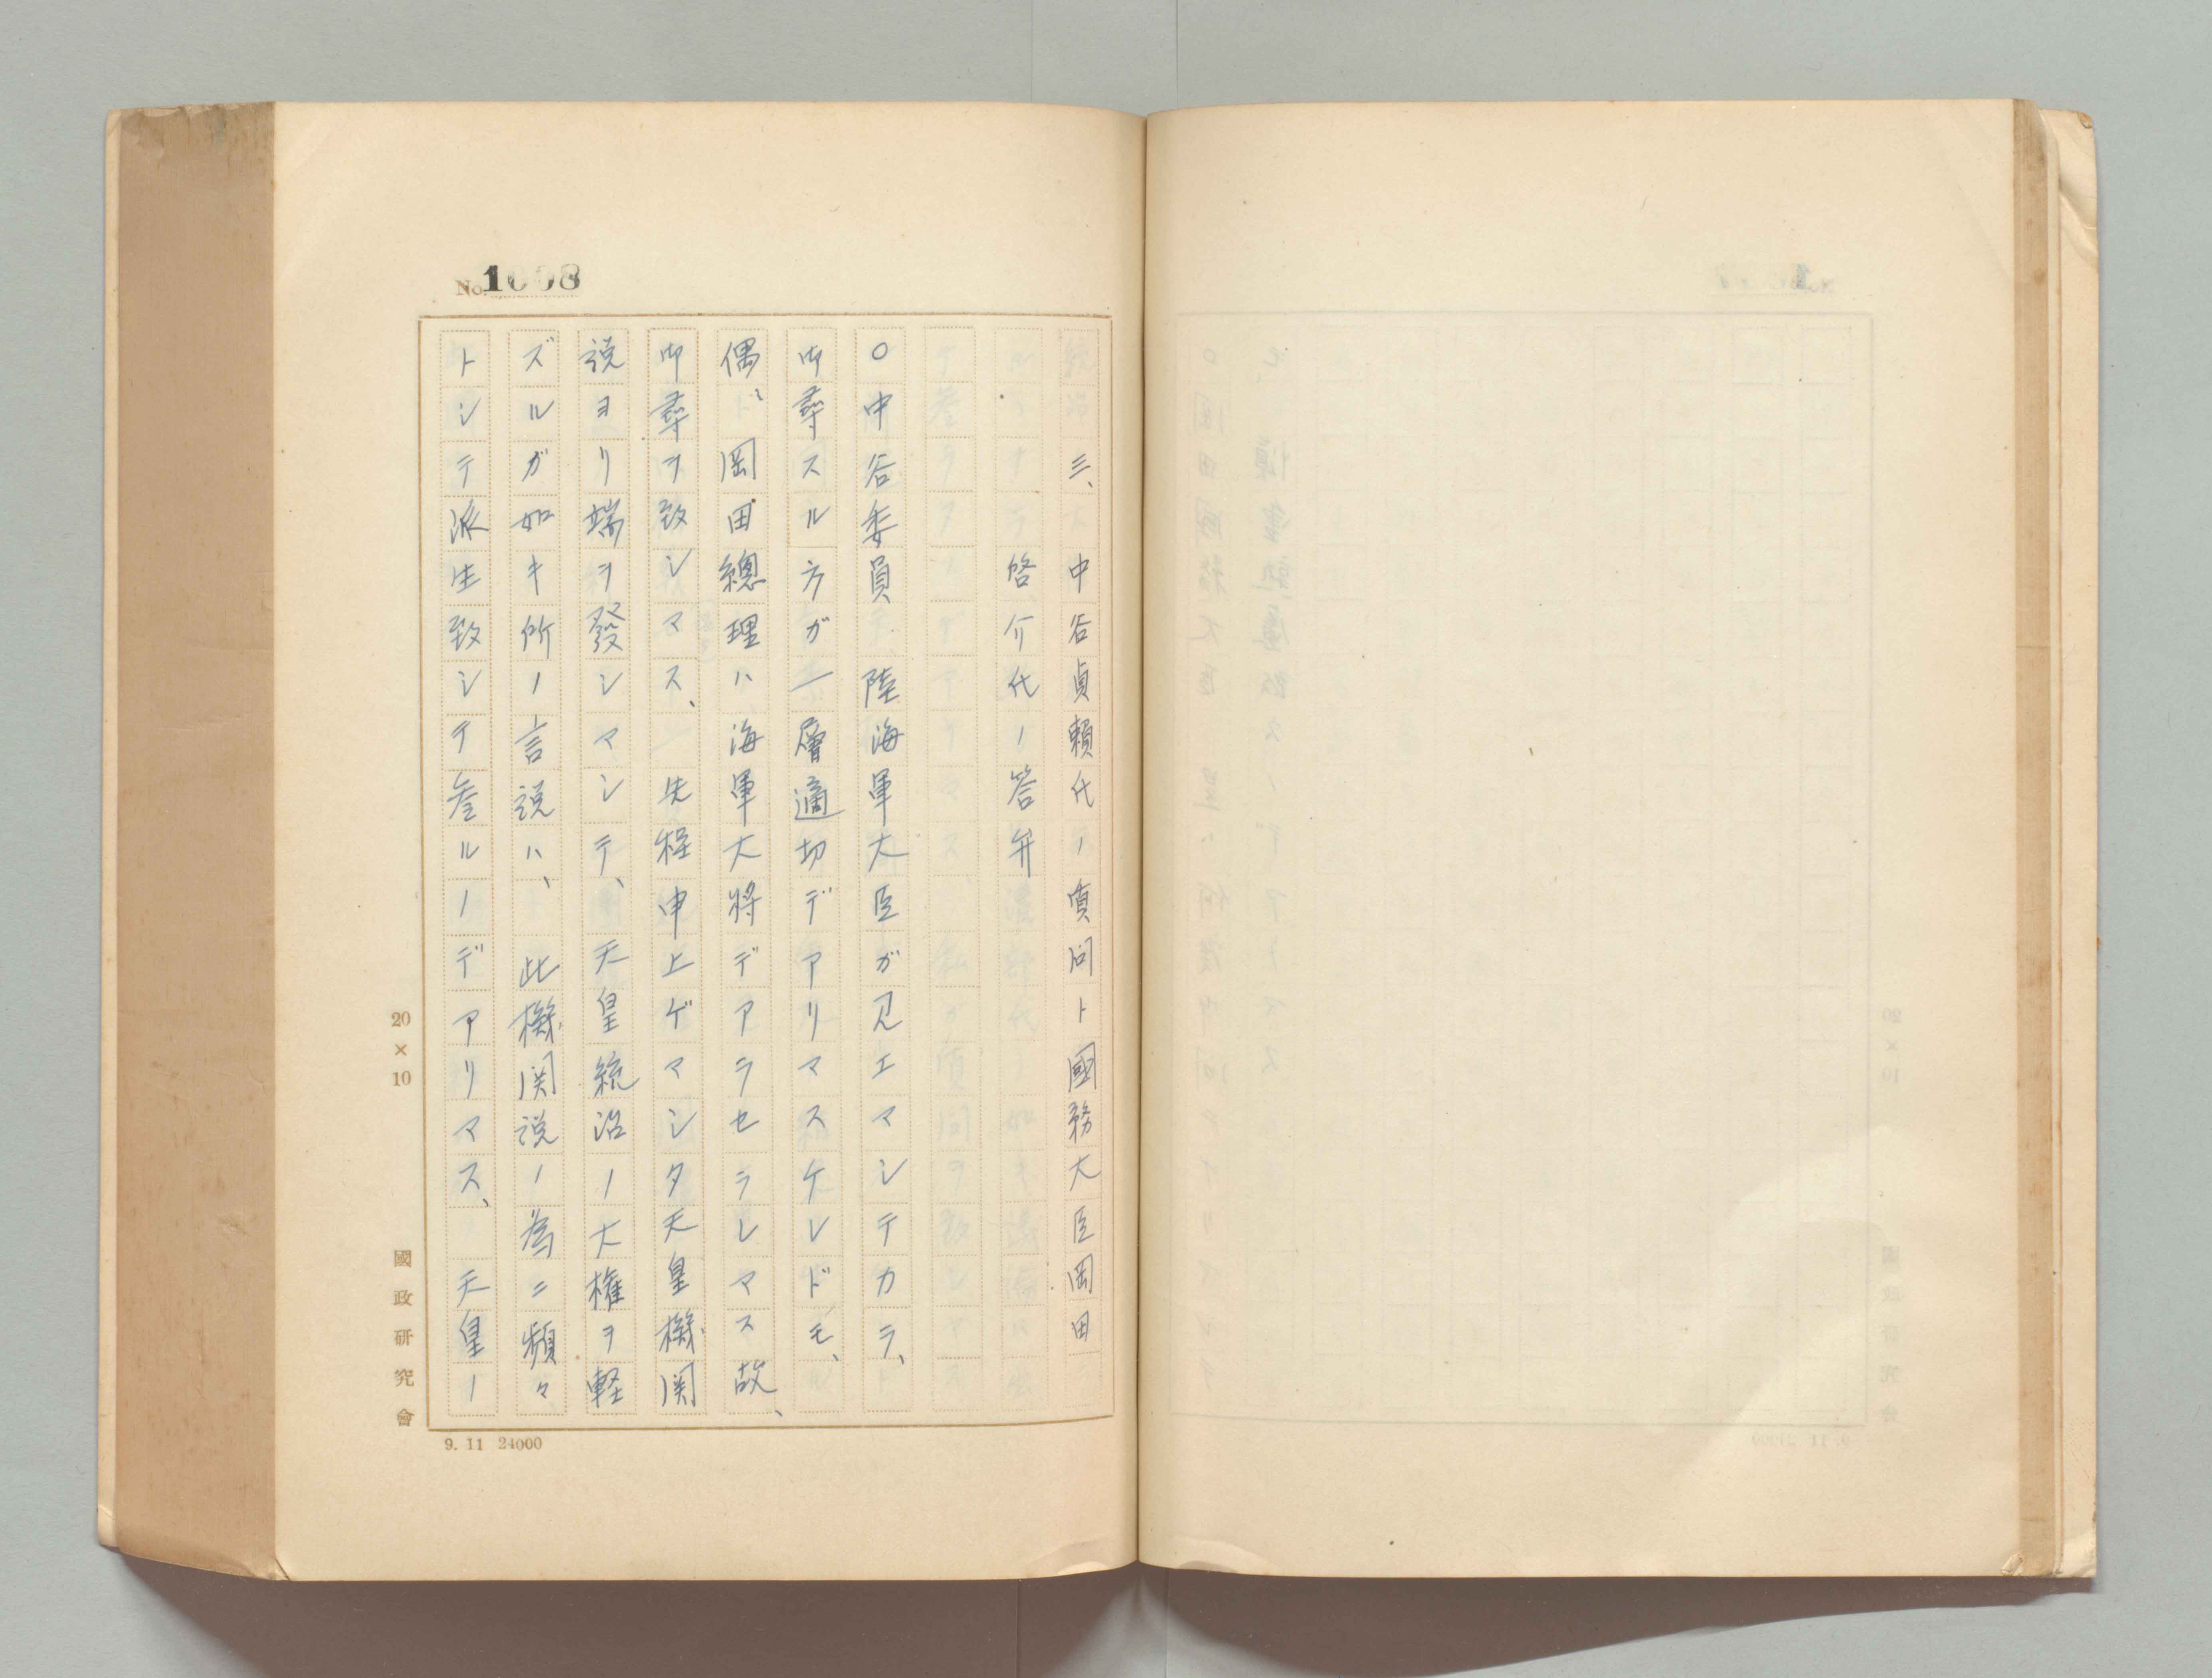 No. 1008
三、中谷貞頼氏ノ質問ト國務大臣岡田
啓介氏ノ答弁
○中谷委員　陸海軍大臣ガ見エマシテカラ、
御尋スル方ガ一層適切デアリマスケレドモ、
偶〻岡田總理ハ海軍大将デアラセラレマス故、
御尋ヲ致シマス、　先程申上ゲマシタ天皇機関
説ヨリ端ヲ發シマシテ、天皇統治ノ大権ヲ軽
ズルガ如キ所ノ言説ハ、　此機関説ノ為ニ頻々
トシテ派生致シテ参ルノデアリマス、　天皇ノ
20×10
國政研究會
9. 11 24000